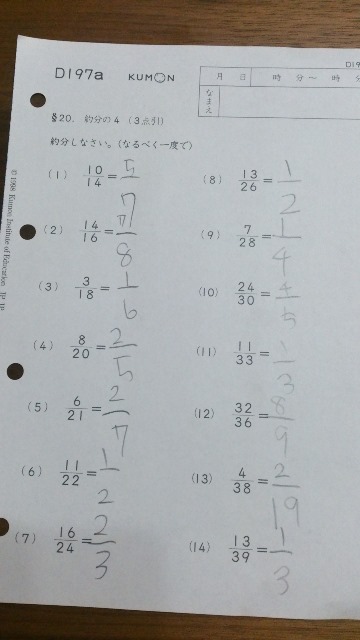 D197a KUMON
D19
月 日 時 分～ 時 分
なまえ
§20. 約分の4 (3点引)
約分しなさい。(なるべく一度で)
(1) 10/14 = 5/7
(2) 14/16 = 7/8
(3) 3/18 = 1/6
(4) 8/20 = 2/5
(5) 6/21 = 2/7
(6) 11/22 = 1/2
(7) 16/24 = 2/3
(8) 13/26 = 1/2
(9) 7/28 = 1/4
(10) 24/30 = 4/5
(11) 11/33 = 1/3
(12) 32/36 = 8/9
(13) 4/38 = 2/19
(14) 13/39 = 1/3
© 1998 Kumon Institute of Education JP